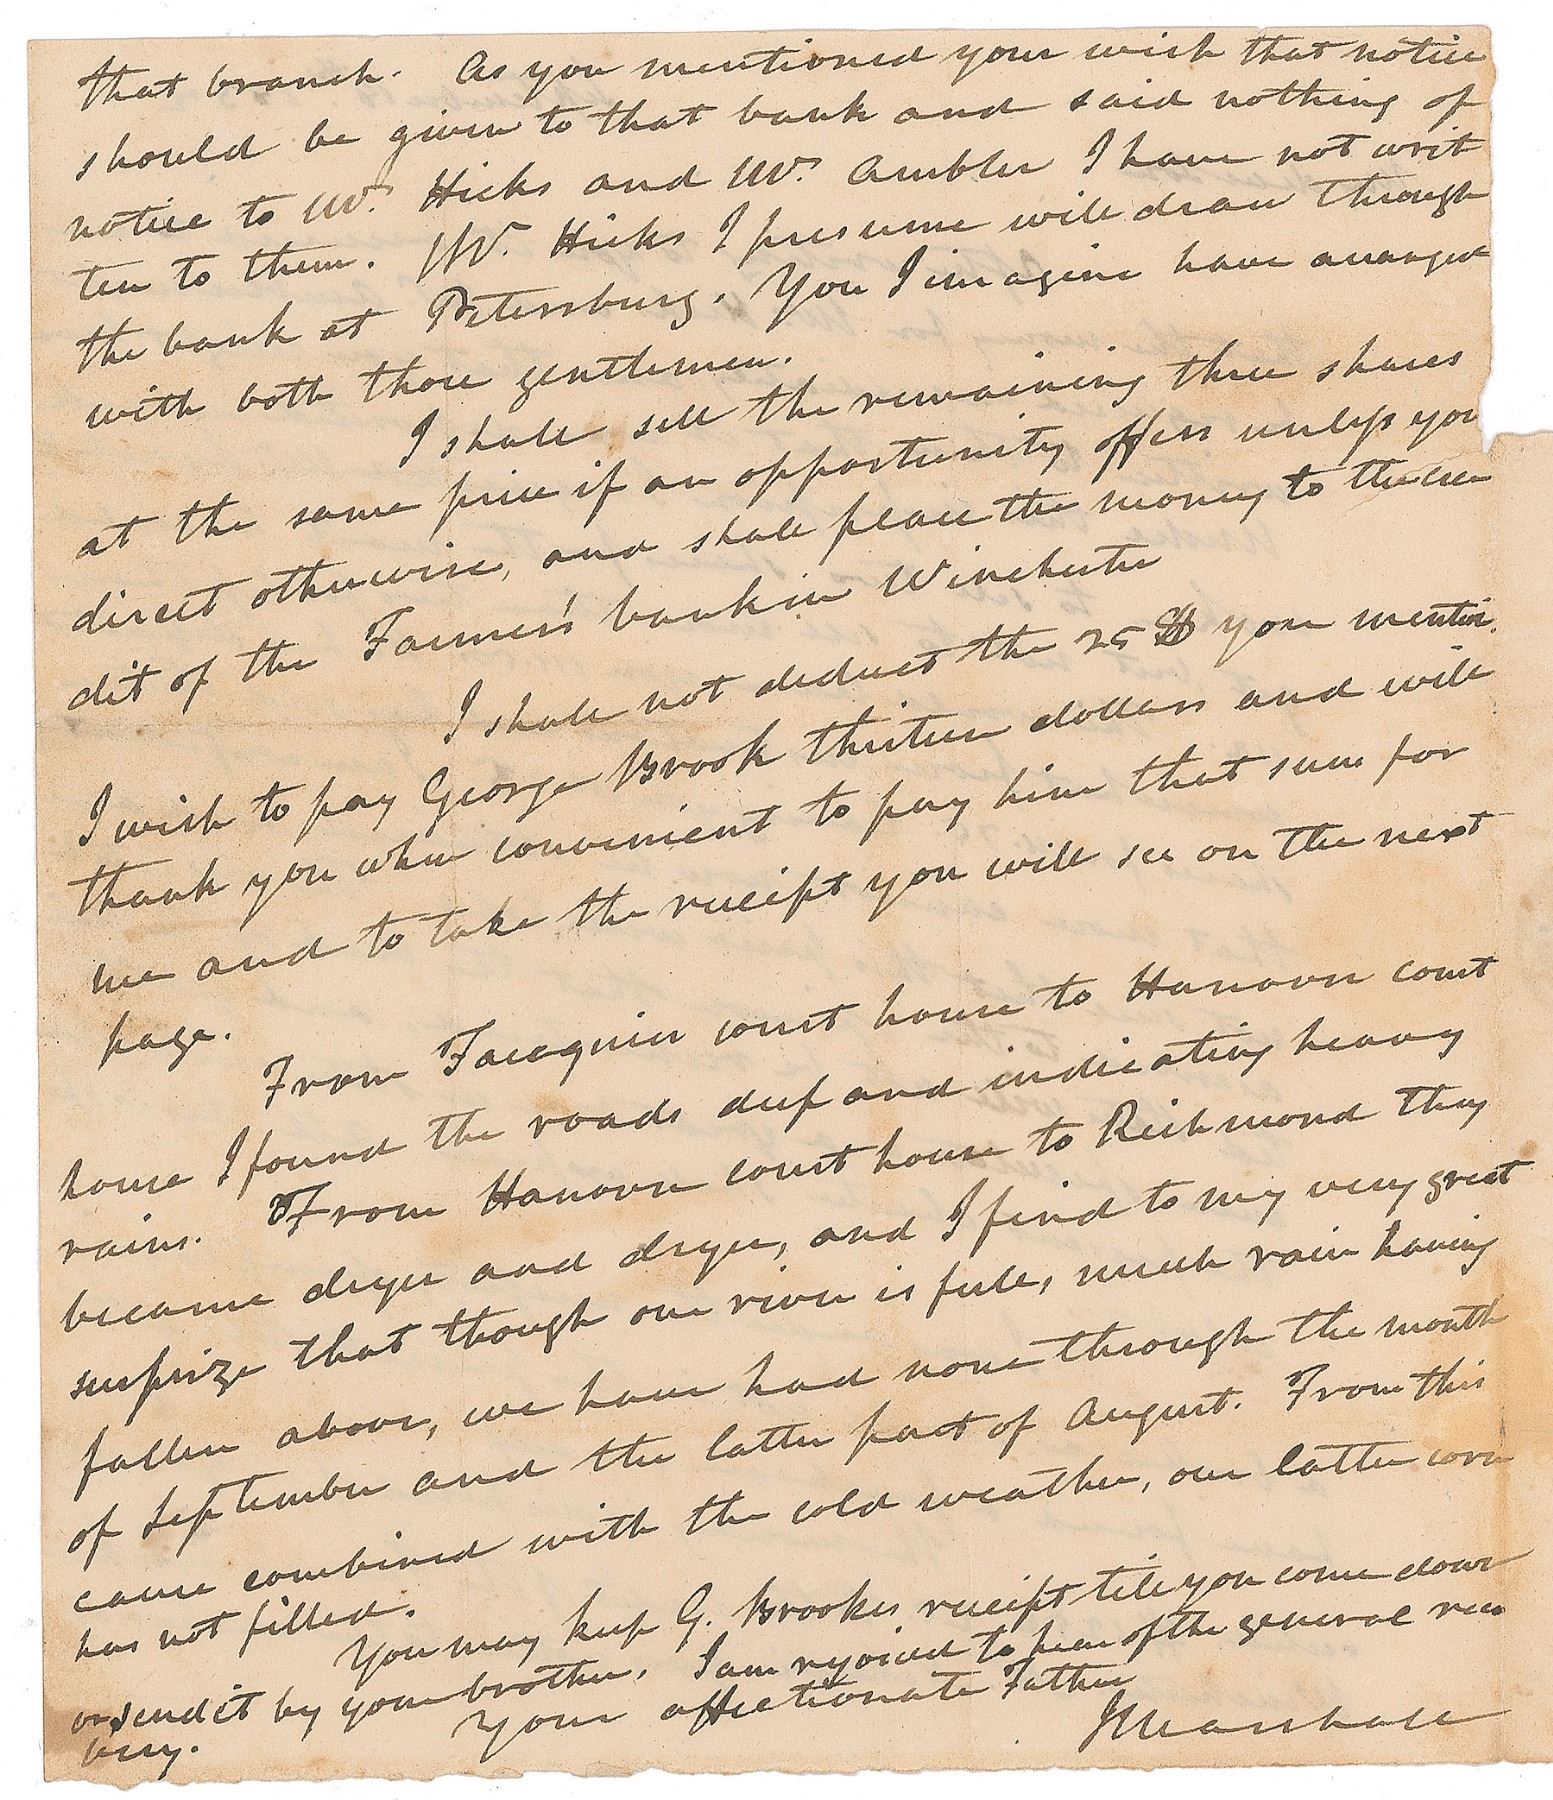 that branch. As you mentioned your wish that notice
should be given to that bank and said nothing of
notice to Mr. Hicks and Mr. Ambler I have not writ
ten to them. Mr. Hicks I presume will draw through
the bank at Petersburg. You I imagine have arranged
with both those gentlemen.
I shall sell the remaining three shares
at the same price if an opportunity offers unless you
direct otherwise, and shall place the money to the cre
dit of the Farmer's bank in Winchester
I shall not deduct the 25 $ you mention.
I wish to pay George Brook thirteen dollars and will
thank you when convenient to pay him that sum for
me and to take the receipt you will see on the next
page.
From Facquier court house to Hanover court
house I found the roads deep and indicating heavy
rains. From Hanover court house to Richmond they
became dryer and dryer, and I find to my very great
surprize that though our river is full, much rain having
fallen above, we have had none through the month
of September and the latter part of August. From this
cause combined with the cold weather, our latter corn
has not filled.
You may keep G. Brookes receipt till you come down
or send it by your brother. I am rejoiced to hear of the general reco
very.
Your affectionate Father
J Marshall